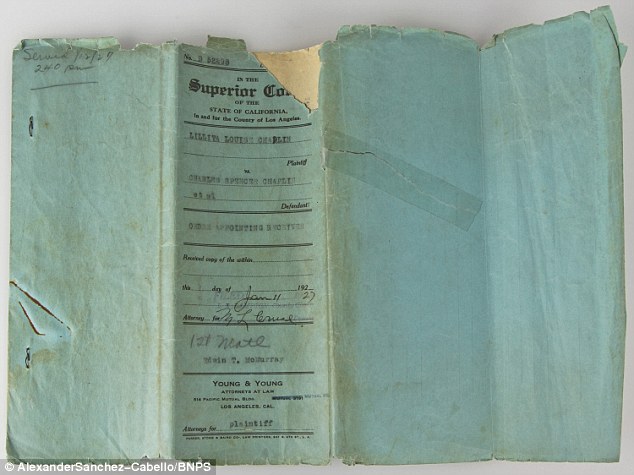 Served
240 pm
No. D
IN THE
Superior Co
OF THE
STATE OF CALIFORNIA,
In and for the County of Los Angeles.
LILLITA LOUISE CHAPLIN
Plaintiff
vs
CHARLES SPENCER CHAPLIN
et al
Defendant
ORDER APPOINTING RECEIVER
Received copy of the within
this day of 192
Jan 11 27
Attorney for
Edwin T. McMurray
YOUNG & YOUNG
ATTORNEYS AT LAW
PACIFIC MUTUAL BLDG.
LOS ANGELES, CAL.
Attorneys for plaintiff
© AlexanderSanchez-Cabello/BNPS